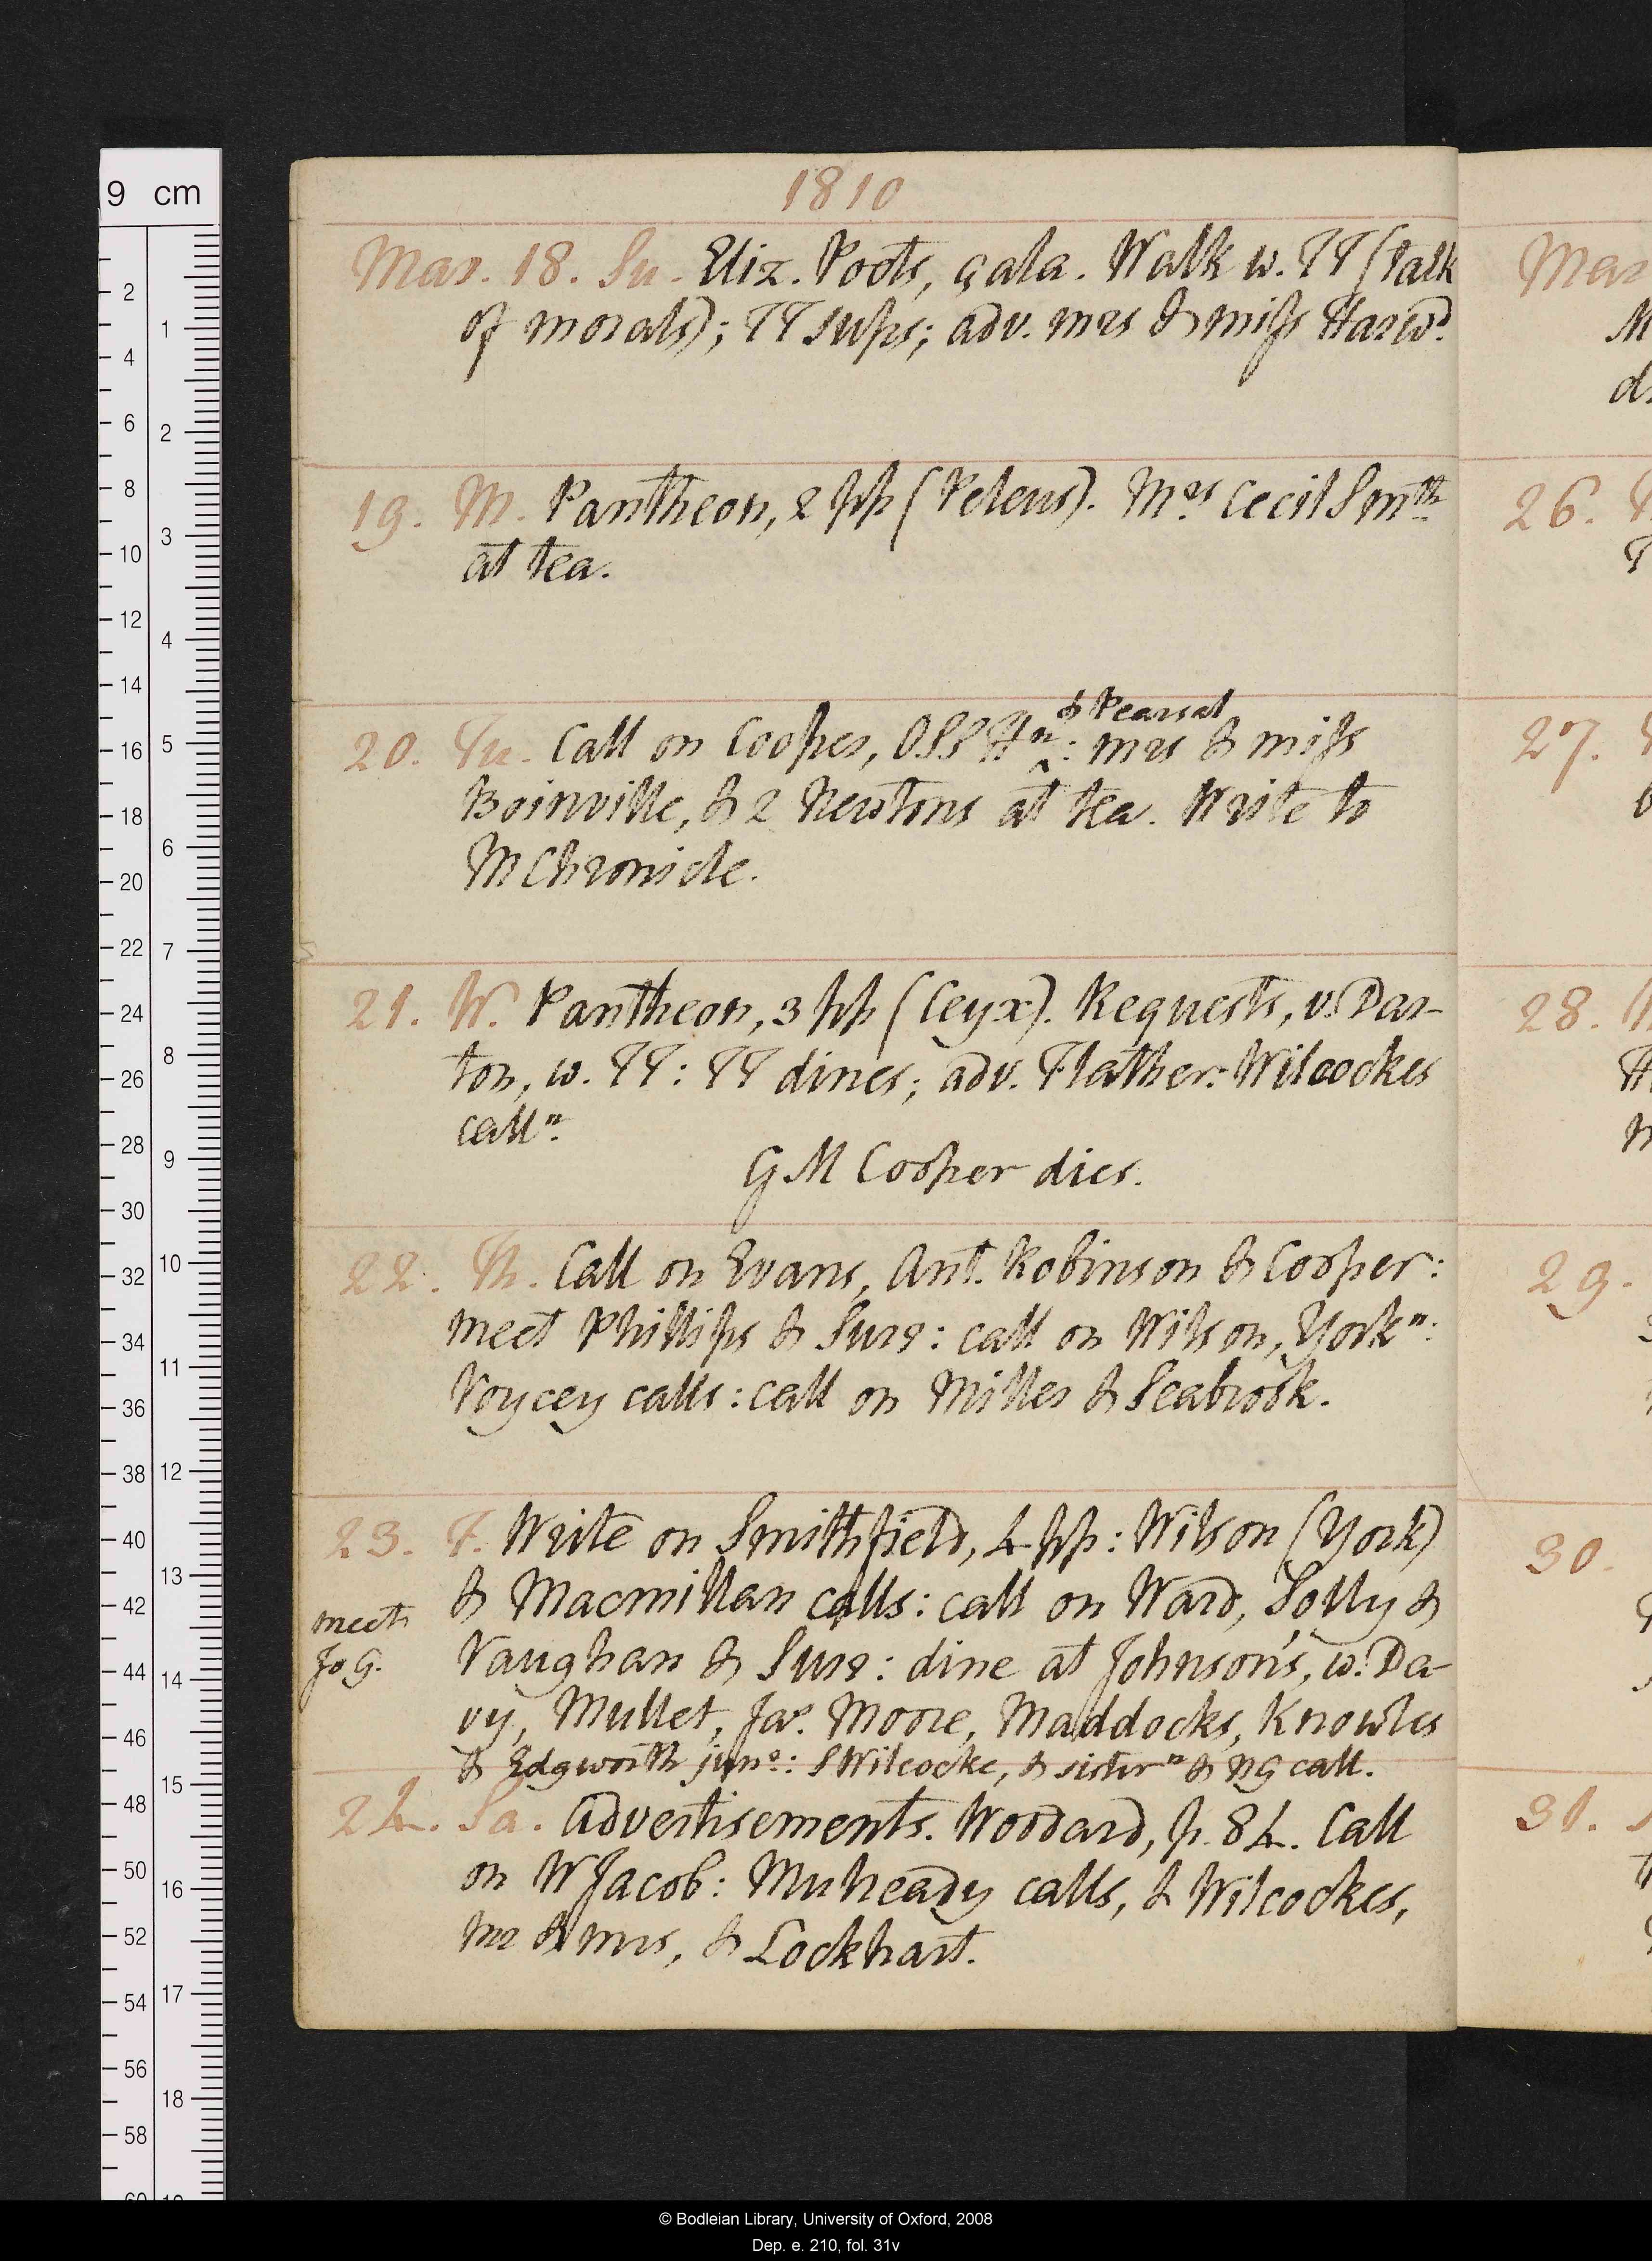 1810
Mar. 18. Su. Eliz. Poets, çala. Walk w. TT (talk
of morals); TT sups; adv. mrs & miss Harwd.
19. M. Pantheon, 2 pp (Peleus). Mrs Cecil Smth
at tea.
& Pearsal
20. Tu. Call on Cooper, OSS Hn ‸: mrs & miss
Boinville, & 2 Newtons at tea. Write to
M Chronicle.
21. W. Pantheon, 3 pp (Ceyx). Requests, v. Dar-
ton, w. TT: TT dines; adv. Flather: Wilcockes
calln.
G M Cooper dies.
22. Th. Call on Evans, Ant. Robinson & Cooper:
meet Phillips & Surr: call on Wilson, Yorkn:
Voycey calls: call on Miller & Seabrook.
23. F. Write on Smithfield, 4 pp: Wilson (York)
& Macmillan calls: call on Ward, Solly &
meet
Jo G.
Vaughan & Surr: dine at Johnson's, w. Da-
vy, Mullet, Jas. Moore, Maddocks, Knowles
& Edgworth junr: S Wilcocke, & sistern & NG call.
24. Sa. Advertisements. Woodard, p. 84. Call
on W Jacob: Muheady calls, & Wilcockes,
mr & mrs, & Lockhart.
Mar
M
26.
27.
28.
29.
30.
31.
9 cm
2
4
6
8
10
12
14
16
18
20
22
24
26
28
30
32
34
36
38
40
42
44
46
48
50
52
54
56
58
1
2
3
4
5
6
7
8
9
10
11
12
13
14
15
16
17
18
© Bodleian Library, University of Oxford, 2008
Dep. e. 210, fol. 31v